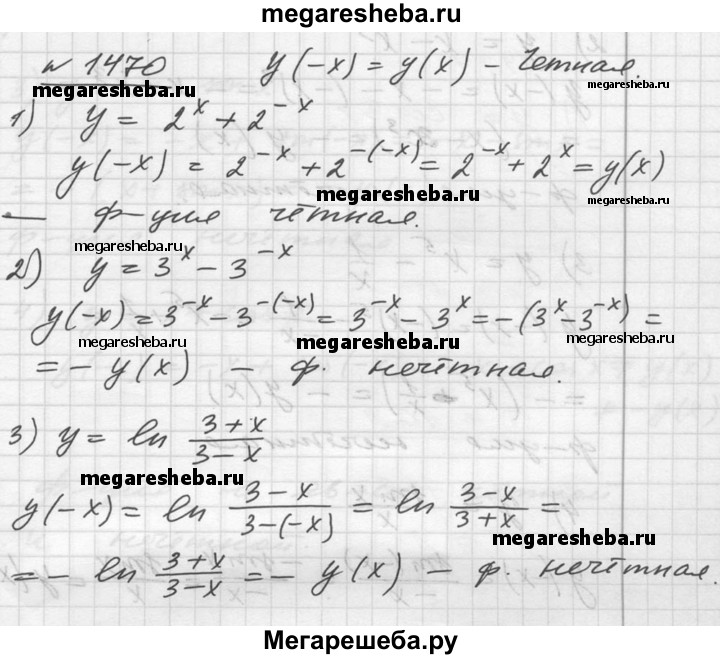 megaresheba.ru
№ 1470 y(-x) = y(x) - Четная.
megaresheba.ru megaresheba.ru
1) y = 2^x + 2^{-x}
y(-x) = 2^{-x} + 2^{-(-x)} = 2^{-x} + 2^x = y(x)
megaresheba.ru
— ф-ция чётная.
megaresheba.ru
2) y = 3^x - 3^{-x}
y(-x) = 3^{-x} - 3^{-(-x)} = 3^{-x} - 3^x = -(3^x - 3^{-x}) =
megaresheba.ru megaresheba.ru
= - y(x) - ф. нечётная.
3) y = ln \frac{3+x}{3-x}
megaresheba.ru
y(-x) = ln \frac{3-x}{3-(-x)} = ln \frac{3-x}{3+x} =
megaresheba.ru
= - ln \frac{3+x}{3-x} = - y(x) - ф. нечётная.
Мегарешеба.ру